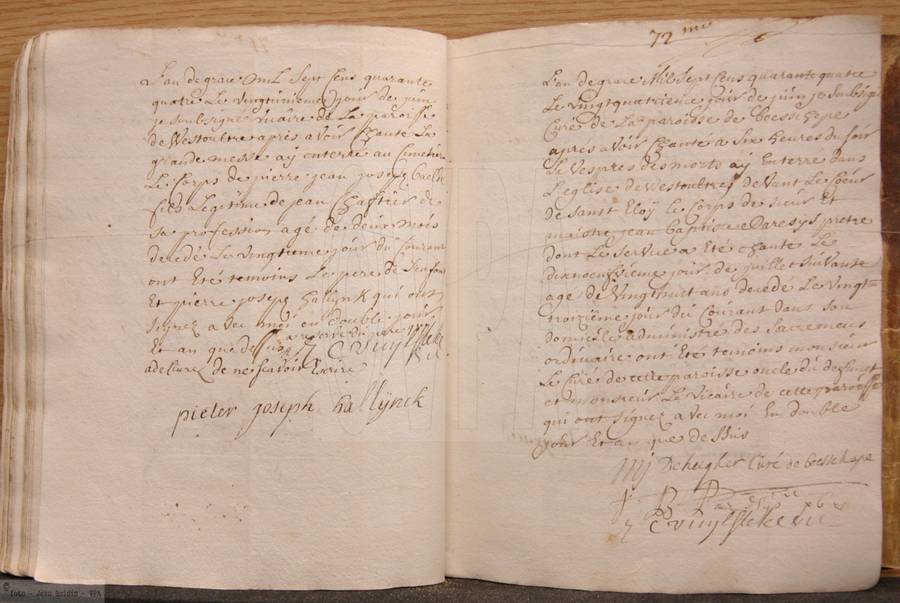 L'an de grace mil sept cens quarante
quatre Le vingtunieme jour de juin
je soubsigné vicaire de La paroisse
de Westoutre après avoir chanté La
grande messe ay enterré au Cimetier
Le Corps de pierre jean joseph
fils Legitime de jean
sa profession agé de deux mois
decedé Le vingtieme jour du Courant
ont été temoins Le pere de L'enfant
Et pierre joseph hallynk qui ont
signez avec moi en double jour
Et an que dessus
a declarez de ne scavoir Ecrire
pieter joseph hallynck
72 me
L'an de grace Mil Sept Cens quarante quatre
Le vingtquatrieme jour de juin je Soubsigné
Curé de La paroisse de boesschepe
après avoir chanté a Six heures du Soir
Le vespres des morts ay Enterré dans
L'eglise de Westoutre devant Le Coeur
de Saint Eloÿ le Corps de sieur Et
maistre jean baptiste Daresys pretre
dont Le Service a Eté chanté Le
dixneufvieme jour de juillet Suivante
agé de vingthuit ans decedé Le vingt
troizieme jour du Courant dans son
domicile administré des Sacremens
ordinaire ont Eté temoins monsieur
Le Curé de cette paroisse oncle du deffunct
et monsieur Le vicaire de cette paroisse
qui ont Signez avec moi En double
jour Et an que dessus
Curé de boesschepe
© Foto - Jens Baidin - VPA